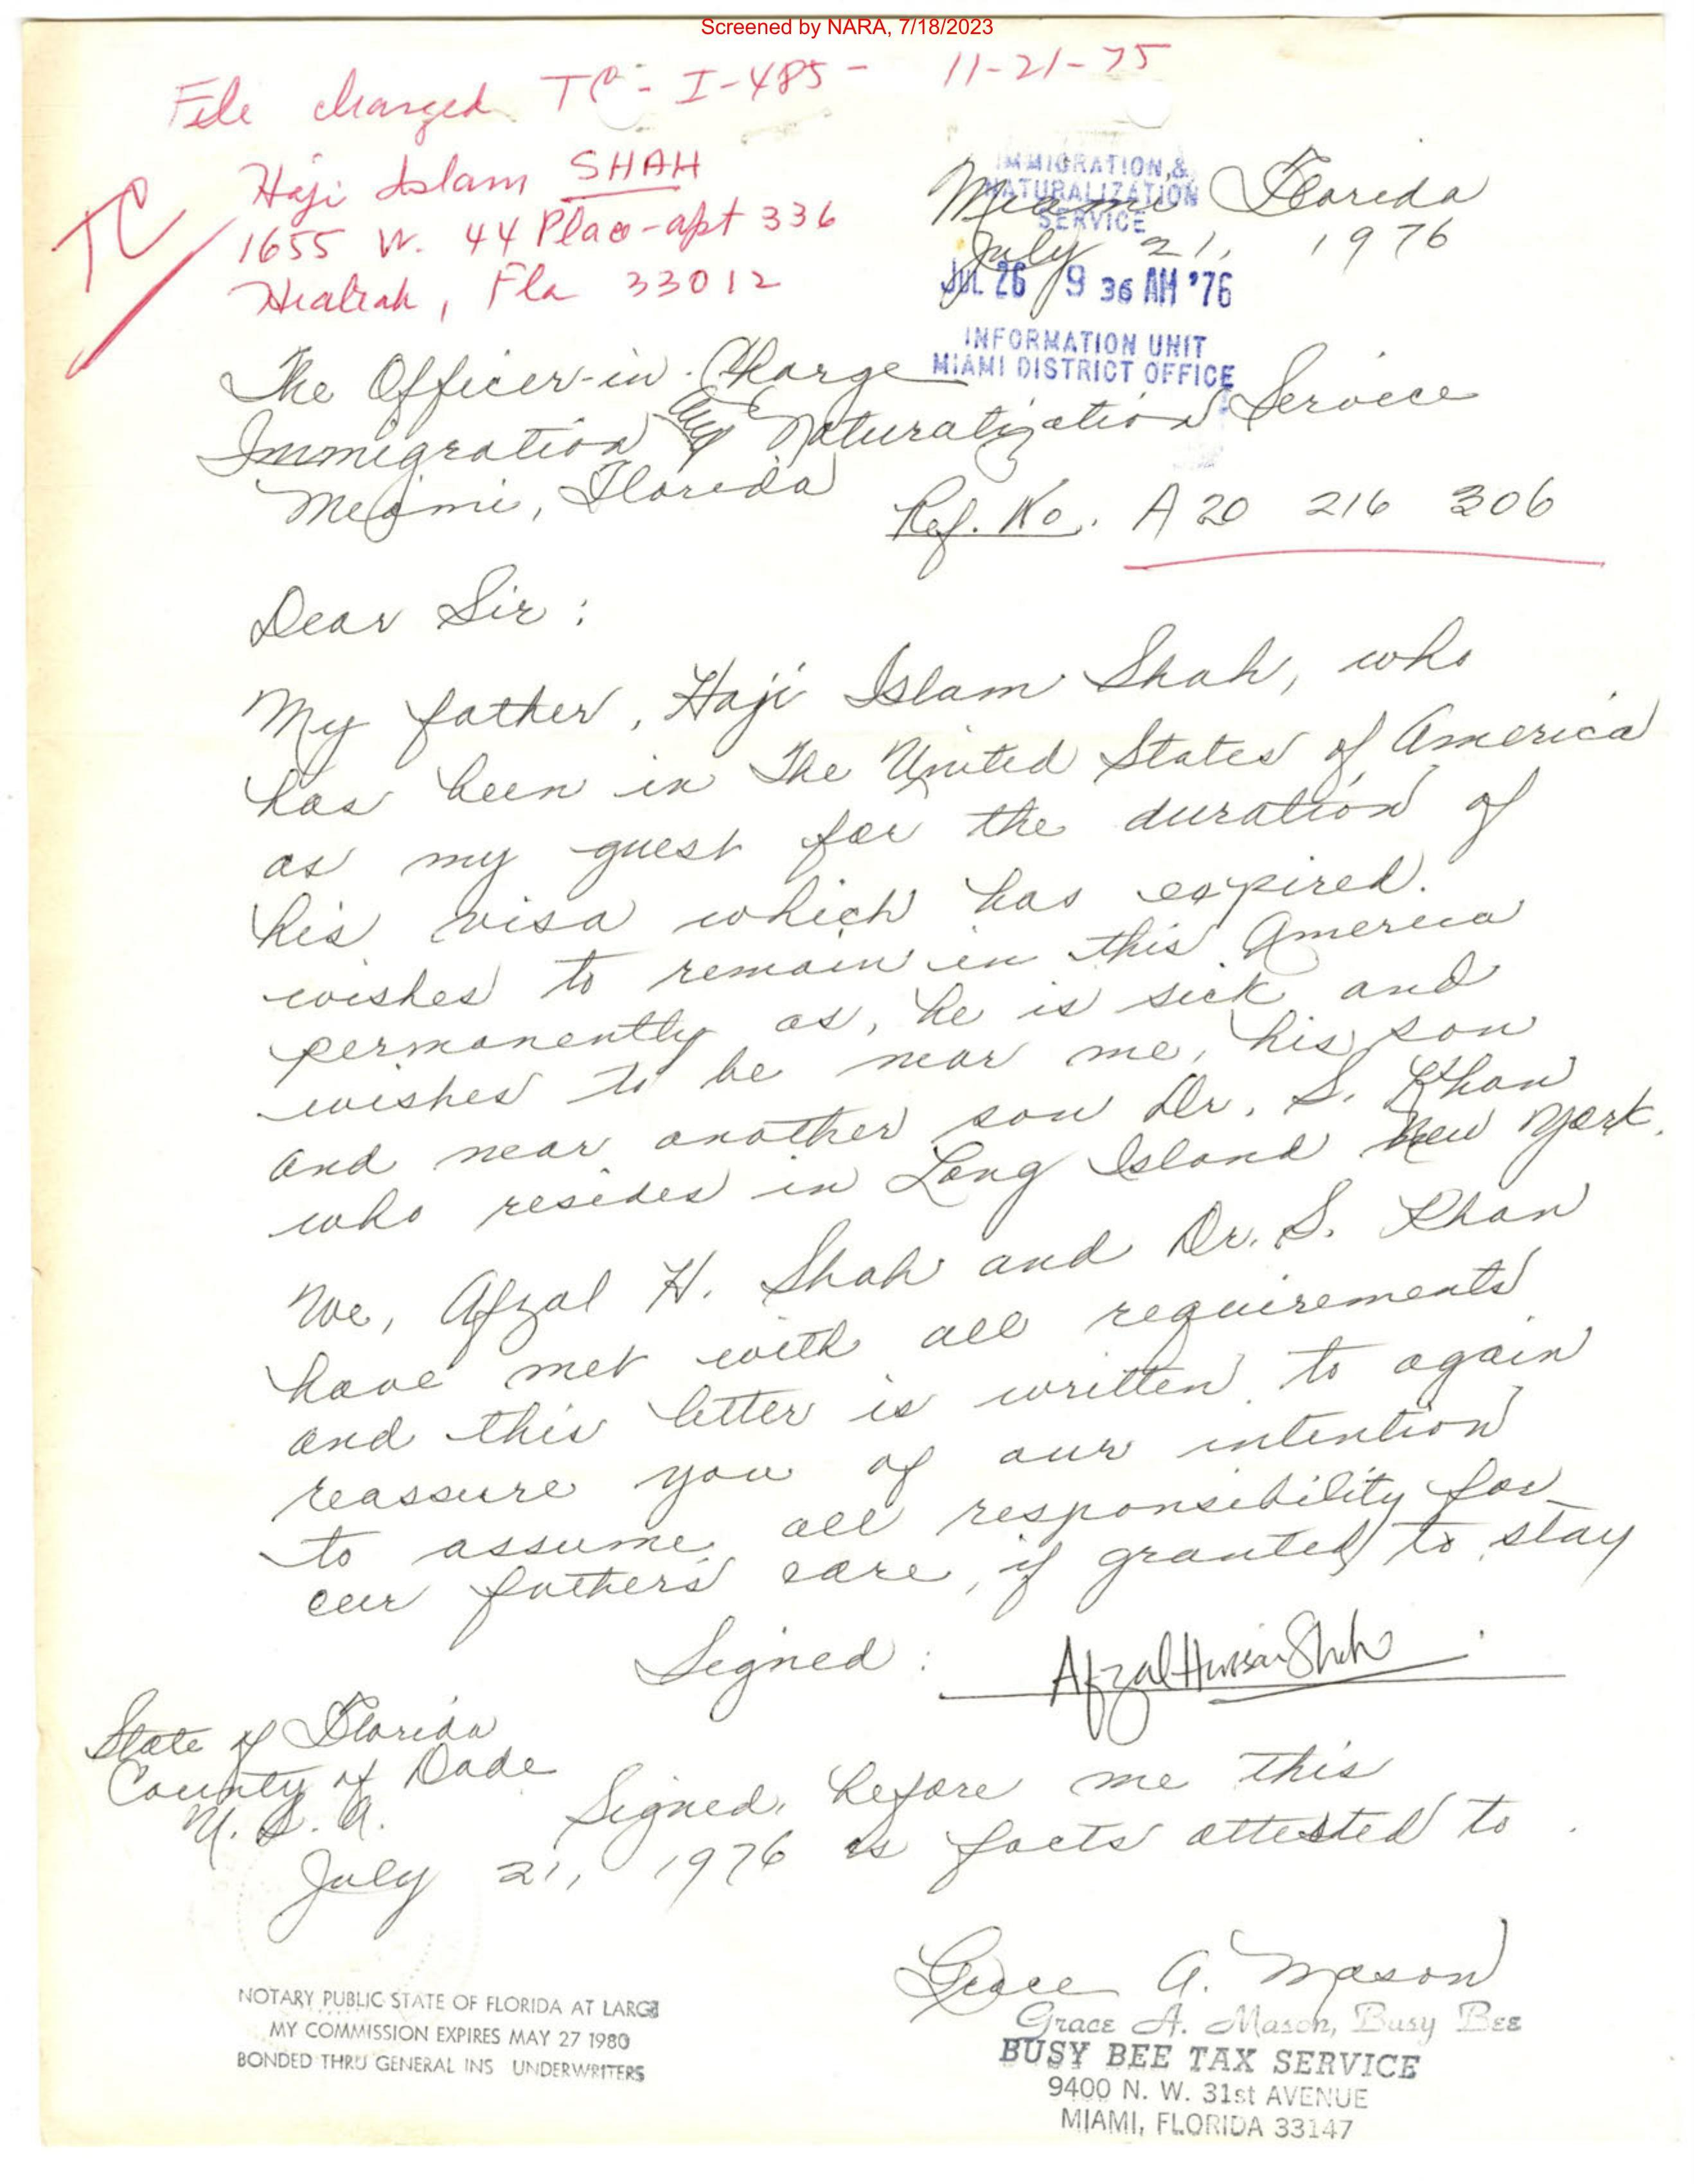 Screened by NARA, 7/18/2023
File charged TC - I-485 - 11-21-75
TC
Haji Islam SHAH
1655 W. 44 Place - apt 336
Hialeah, Fla 33012
IMMIGRATION &
NATURALIZATION
SERVICE
JUL 26 9 36 AM '76
INFORMATION UNIT
MIAMI DISTRICT OFFICE
Miami Florida
July 21, 1976
The Officer-in-Charge
Immigration and Naturalization Service
Miami, Florida
Ref. No. A20 216 306
Dear Sir:
My father, Haji Islam Shah, who
has been in the United States of America
as my guest for the duration of
his visa which has expired.
wishes to remain in this America
permanently as, he is sick and
wishes to be near me, his son
and near another son Dr. S. Khan
who resides in Long Island New York.
We, Afzal H. Shah and Dr. S. Khan
have met with all requirements
and this letter is written to again
reassure you of our intention
to assume all responsibility for
our fathers care, if granted to stay
Signed: Afzal Hussain Shah
State of Florida
County of Dade
U. S. A.
Signed before me this
July 21, 1976 as facts attested to.
Grace A. Mason
Grace A. Mason, Busy Bee
BUSY BEE TAX SERVICE
9400 N. W. 31st AVENUE
MIAMI, FLORIDA 33147
NOTARY PUBLIC STATE OF FLORIDA AT LARGE
MY COMMISSION EXPIRES MAY 27 1980
BONDED THRU GENERAL INS UNDERWRITERS